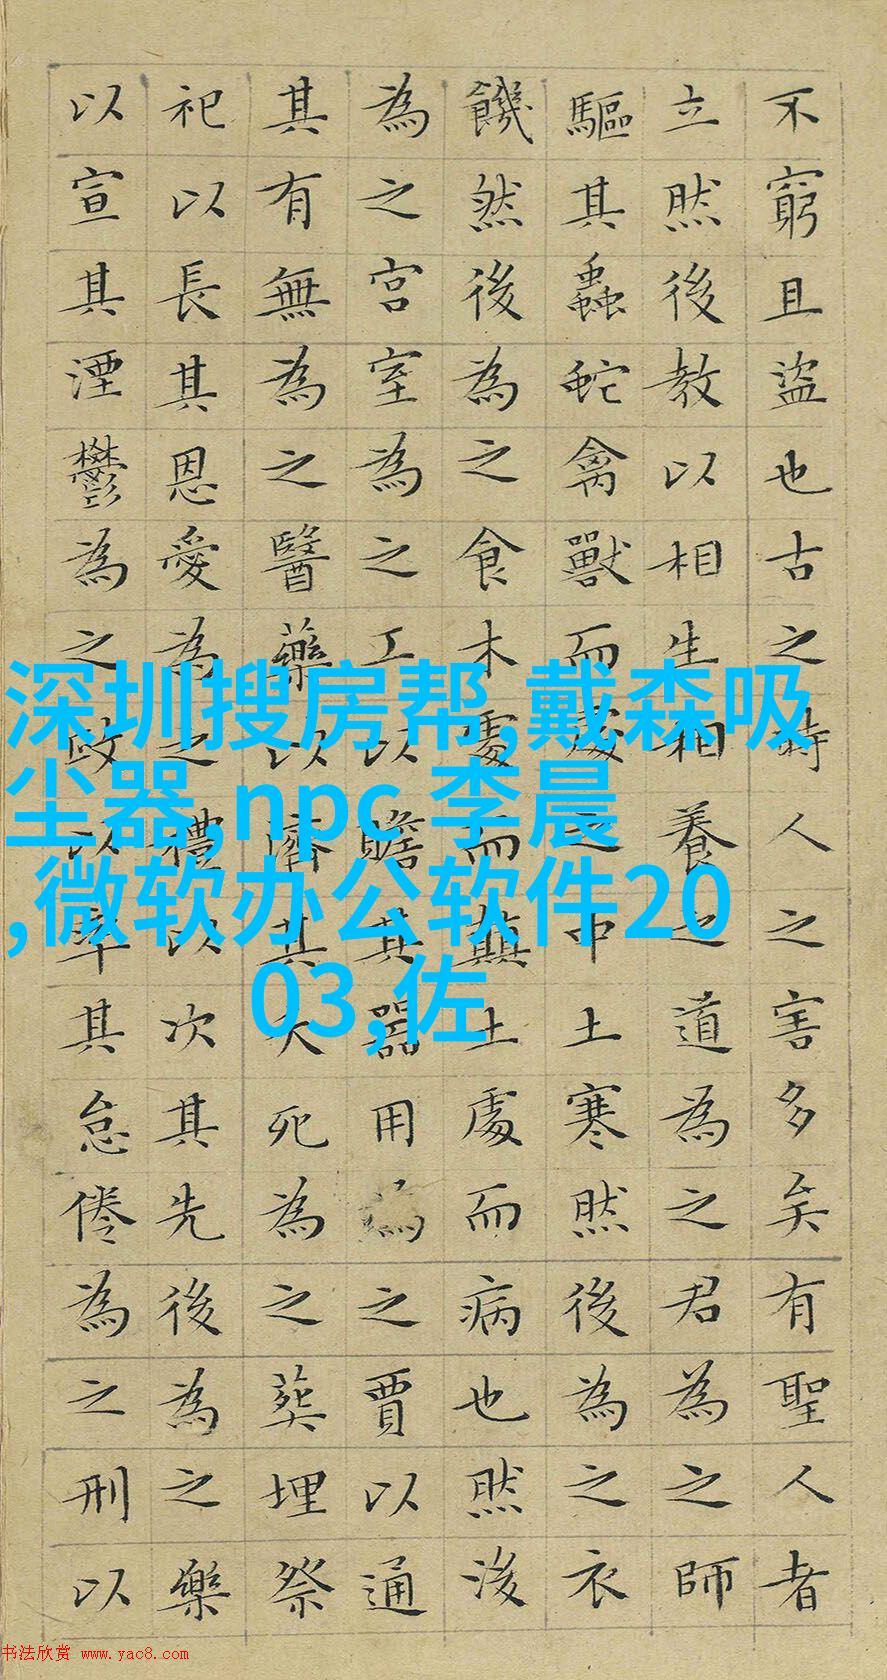 不窮且盜也古之時人之害多矣有聖人者
立然後教以相生相養之道為之君為之師
驅其蟲蛇禽獸而處之中土寒然後為之衣
饑然後為之食木處而顛土處而病也然後
為之宮室為之工以贍其器用為之賈以通
其有無為之醫藥以濟其夭死為之葬埋祭
祀以長其恩愛為之禮以次其先後為之樂
以宣其湮鬱為之政以率其怠倦為之刑以
深圳搜房帮,戴森吸
尘器,npc 李晨
,微软办公软件20
03,佐
书法欣赏 www.yac8.com